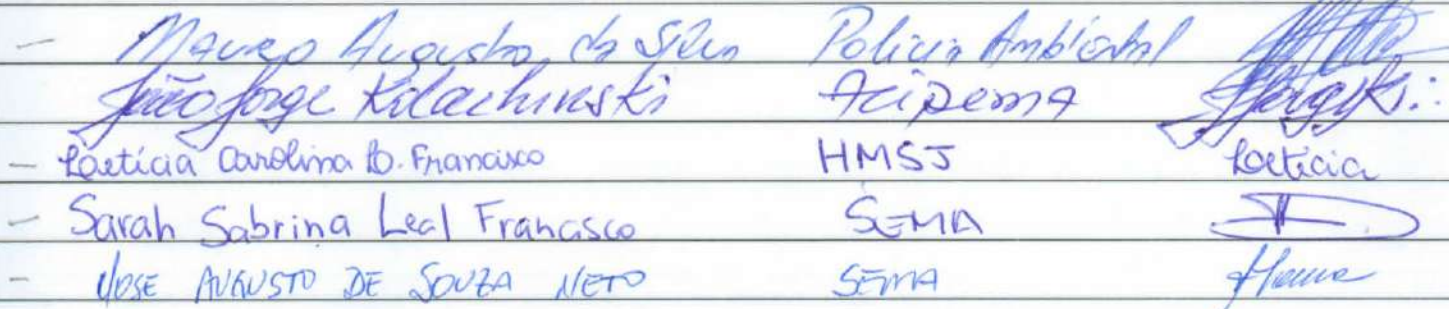 - Mauro Augusto da Silva Policia Ambiental
João Jorge Kolachinski Acipema
- Laeticia Carolina B. Francisco HMSJ Laeticia
- Sarah Sabrina Leal Francisco SEMA
- JOSE AUGUSTO DE SOUZA NETO SEMA